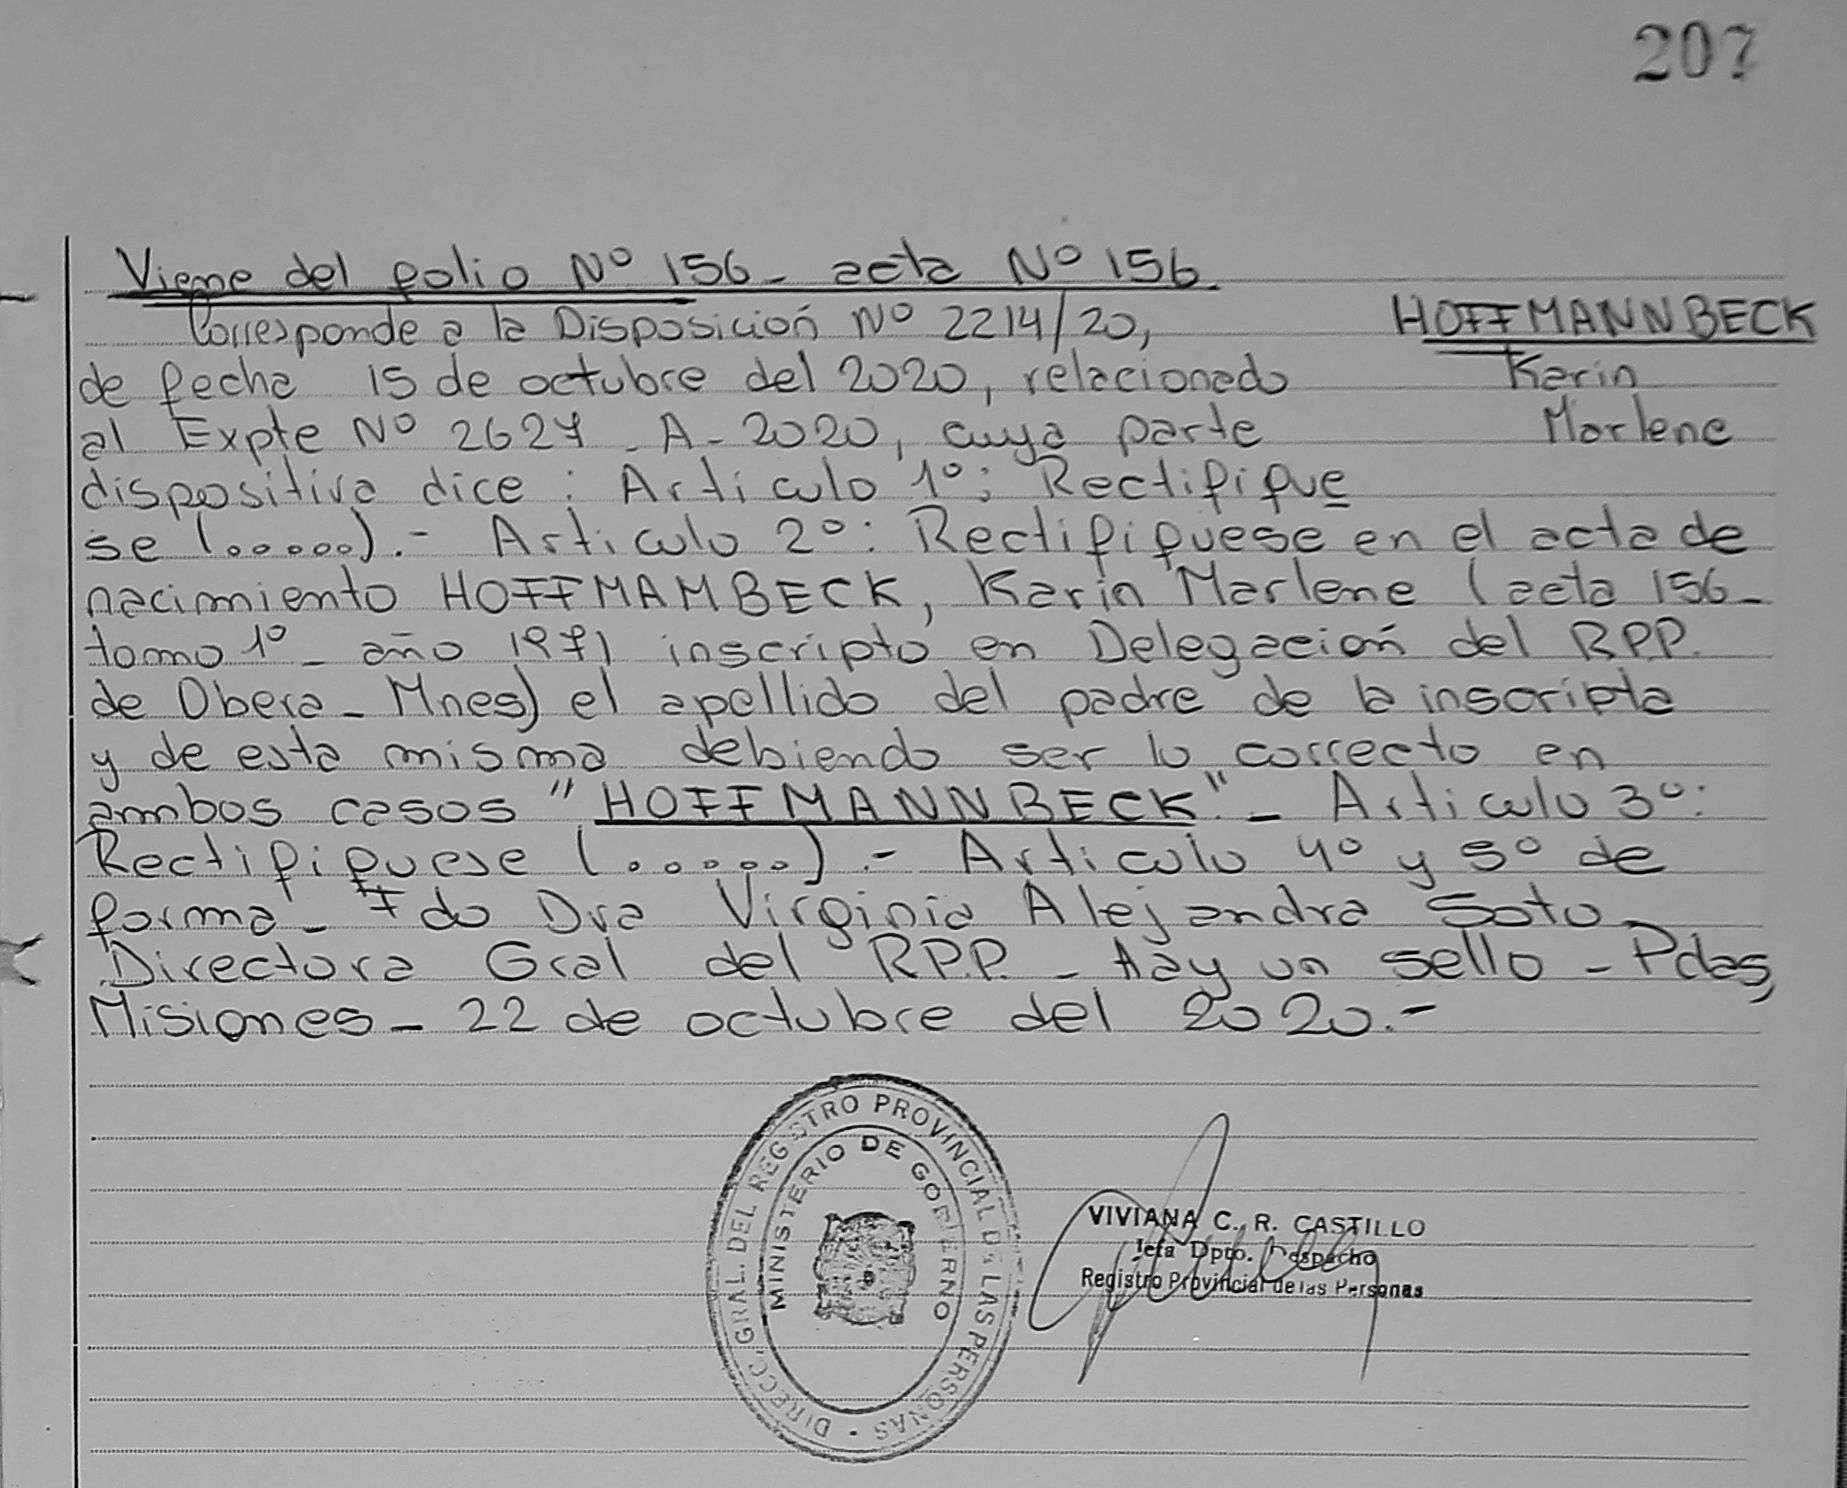 207
Viene del folio Nº 156 - acta Nº 156.
Corresponde a la Disposición Nº 2214/20,
HOFFMANNBECK
de fecha 15 de octubre del 2020, relacionado
Karin
al Expte Nº 2627 - A - 2020, cuya parte
Marlene
dispositiva dice : Articulo 1º: Rectifique
se (.....).- Articulo 2º: Rectifiquese en el acta de
nacimiento HOFFMAMBECK, Karin Marlene (acta 156 -
tomo 1º - año 1971 inscripto en Delegación del R.P.P.
de Obera - Mnes) el apellido del padre de la inscripta
y de esta misma debiendo ser lo correcto en
ambos casos "HOFFMANNBECK". - Articulo 3º:
Rectifiquese (.....).- Articulo 4º y 5º de
forma - Fdo Dra Virginia Alejandra Soto
Directora Gral del R.P.P. - Hay un sello - Pdas,
Misiones - 22 de octubre del 2020.-
DIRECC. GRAL. DEL REGISTRO PROVINCIAL DE LAS PERSONAS
MINISTERIO DE GOBIERNO
VIVIANA C. R. CASTILLO
Jefa Dpto. Despacho
Registro Provincial de las Personas